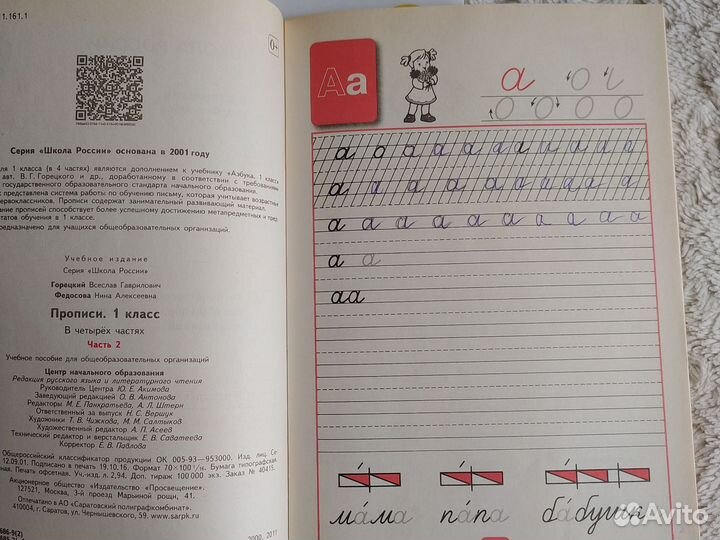 1.161.1
0+
Серия «Школа России» основана в 2001 году
ля 1 класса (в 4 частях) являются дополнением к учебнику «Азбука. 1 класс»
авт. В. Г. Горецкого и др., доработанному в соответствии с требованиями
государственного образовательного стандарта начального образования.
представлена система работы по обучению письму, которая учитывает возрастные
ервоклассников. Прописи содержат занимательный развивающий материал.
ание прописей способствует более успешному достижению метапредметных и пред
татов обучения в 1 классе.
редназначено для учащихся общеобразовательных организаций.
Учебное издание
Серия «Школа России»
Горецкий Всеслав Гаврилович
Федосова Нина Алексеевна
Прописи. 1 класс
В четырёх частях
Часть 2
Учебное пособие для общеобразовательных организаций
Центр начального образования
Редакция русского языка и литературного чтения
Руководитель Центра Ю. Е. Акимова
Заведующий редакцией О. В. Антонова
Редакторы М. Е. Панкратьева, А. Л. Штерн
Ответственный за выпуск Н. С. Вершук
Художники Т. В. Чижкова, М. М. Салтыков
Художественный редактор А. П. Асеев
Технический редактор и верстальщик Е. В. Саватеева
Корректор Е. В. Павлова
Общероссийский классификатор продукции ОК 005-93—953000. Изд. лиц. Се
12.09.01. Подписано в печать 19.10.16. Формат 70×100 1/16. Бумага типографская.
ная. Печать офсетная. Уч.-изд. л. 2,94. Доп. тираж 100 000 экз. Заказ № 40415.
Акционерное общество «Издательство «Просвещение».
127521, Москва, 3-й проезд Марьиной рощи, 41.
Отпечатано в АО «Саратовский полиграфкомбинат».
410004, г. Саратов, ул. Чернышевского, 59. www.sarpk.ru
686-9(2)
2000, 2011
Аа
а
а о а а а а а а а а а а
а а а а а а а а а а а
а а а а а а а а а а
а а
аа
ма́ма па́па ба́бушка
Avito